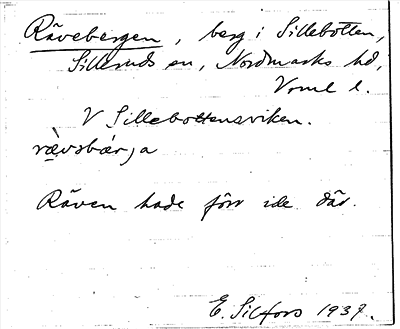 Rävebergen, berg i Sillebotten,
Silleruds sn, Nordmarks hd,
Vrml l.
V Sillebottensviken.
rævəbær̩ja
Räven hade förr ide där.
E. Silfors 1937.